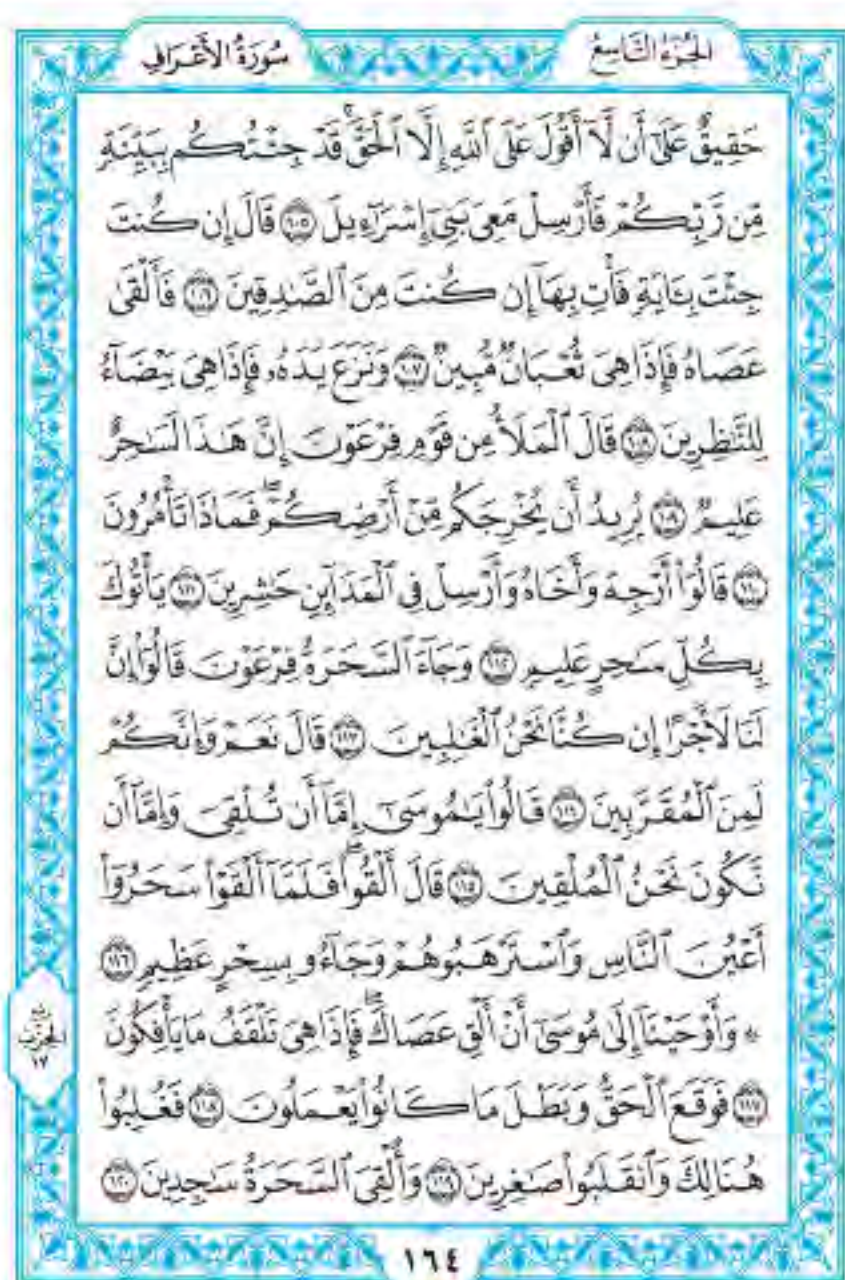 الجزء التاسع
سورة الأعراف
حَقِيقٌ عَلَىٰٓ أَن لَّآ أَقُولَ عَلَى ٱللَّهِ إِلَّا ٱلْحَقَّۚ قَدْ جِئْتُكُم بِبَيِّنَةٍ
مِّن رَّبِّكُمْ فَأَرْسِلْ مَعِىَ بَنِىٓ إِسْرَٰٓءِيلَ ١٠٥ قَالَ إِن كُنتَ
جِئْتَ بِـَٔايَةٍ فَأْتِ بِهَآ إِن كُنتَ مِنَ ٱلصَّٰدِقِينَ ١٠٦ فَأَلْقَىٰ
عَصَاهُ فَإِذَا هِىَ ثُعْبَانٌ مُّبِينٌ ١٠٧ وَنَزَعَ يَدَهُۥ فَإِذَا هِىَ بَيْضَآءُ
لِلنَّٰظِرِينَ ١٠٨ قَالَ ٱلْمَلَأُ مِن قَوْمِ فِرْعَوْنَ إِنَّ هَٰذَا لَسَٰحِرٌ
عَلِيمٌ ١٠٩ يُرِيدُ أَن يُخْرِجَكُم مِّنْ أَرْضِكُمْۖ فَمَاذَا تَأْمُرُونَ
١١٠ قَالُوٓا۟ أَرْجِهْ وَأَخَاهُ وَأَرْسِلْ فِى ٱلْمَدَآئِنِ حَٰشِرِينَ ١١١ يَأْتُوكَ
بِكُلِّ سَٰحِرٍ عَلِيمٍ ١١٢ وَجَآءَ ٱلسَّحَرَةُ فِرْعَوْنَ قَالُوٓا۟ إِنَّ
لَنَا لَأَجْرًا إِن كُنَّا نَحْنُ ٱلْغَٰلِبِينَ ١١٣ قَالَ نَعَمْ وَإِنَّكُمْ
لَمِنَ ٱلْمُقَرَّبِينَ ١١٤ قَالُوا۟ يَٰمُوسَىٰٓ إِمَّآ أَن تُلْقِىَ وَإِمَّآ أَن
نَّكُونَ نَحْنُ ٱلْمُلْقِينَ ١١٥ قَالَ أَلْقُوا۟ۖ فَلَمَّآ أَلْقَوْا۟ سَحَرُوٓا۟
أَعْيُنَ ٱلنَّاسِ وَٱسْتَرْهَبُوهُمْ وَجَآءُو بِسِحْرٍ عَظِيمٍ ١١٦
۞ وَأَوْحَيْنَآ إِلَىٰ مُوسَىٰٓ أَنْ أَلْقِ عَصَاكَۖ فَإِذَا هِىَ تَلْقَفُ مَا يَأْفِكُونَ
١١٧ فَوَقَعَ ٱلْحَقُّ وَبَطَلَ مَا كَانُوا۟ يَعْمَلُونَ ١١٨ فَغُلِبُوا۟
هُنَالِكَ وَٱنقَلَبُوا۟ صَٰغِرِينَ ١١٩ وَأُلْقِىَ ٱلسَّحَرَةُ سَٰجِدِينَ ١٢٠
ربع
الحزب
١٧
١٦٤